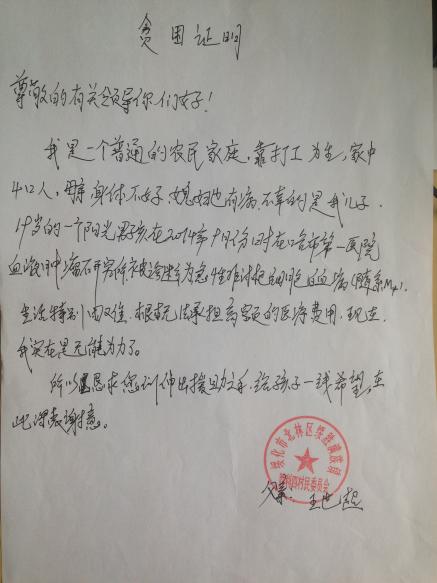 贫困证明
尊敬的有关领导你们好！
我是一个普通的农民家庭，靠打工为生，家中
4口人，身体不好，媳妇也有病，不幸的是我儿子，
19岁的一个阳光男孩在2014年9月份时在哈市第一医院
血液肿瘤研究所被确诊为急性淋巴细胞白血病
生活特别困难，根本无法承担高额的医疗费用，现在
我实在是无能为力了。
所以恳求您们伸出援助之手，给孩子一线希望，在
此深表谢意。
绥化市北林区绥胜满族镇
村民委员会